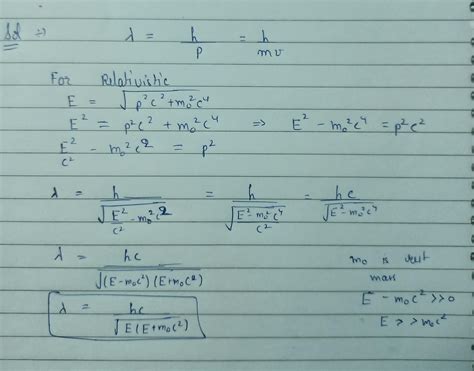 Sol ⇒ λ = h/p = h/mv
For Relativistic
E = √(p²c² + m₀²c⁴)
E² = p²c² + m₀²c⁴ ⇒ E² - m₀²c⁴ = p²c²
E²/c² - m₀²c² = p²
λ = h/√(E²/c² - m₀²c²) = h/√((E² - m₀²c⁴)/c²) = hc/√(E² - m₀²c⁴)
λ = hc/√((E - m₀c²)(E + m₀c²))
λ = hc/√(E(E + m₀c²))
m₀ is rest
mass
E - m₀c² >> 0
E >> m₀c²